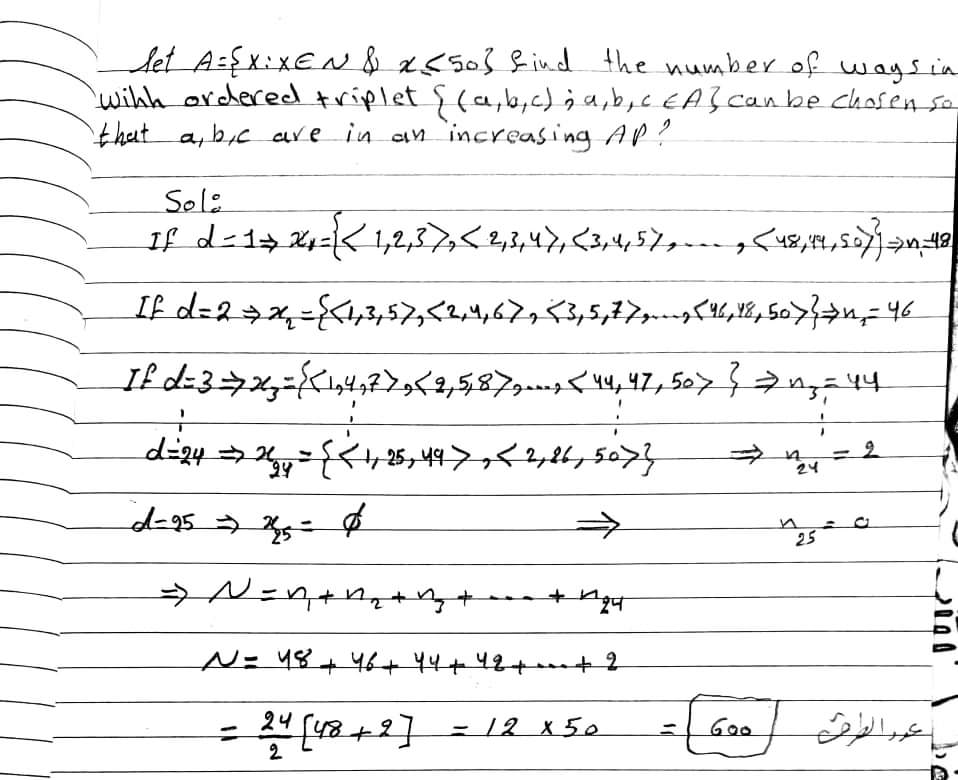 let A={x:x∈N & x≤50} find the number of ways in
wihh ordered triplet {(a,b,c) ; a,b,c ∈A} can be chosen so
that a,b,c are in an increasing AP?
Sol:
If d=1⇒ x₁={<1,2,3>,<2,3,4>,<3,4,5>,----,<48,49,50>}⇒n₁=48
If d=2 ⇒ x₂={<1,3,5>,<2,4,6>,<3,5,7>,....,<46,48,50>}⇒n₂=46
If d=3⇒x₃={<1,4,7>,<2,5,8>,...,<44,47,50>} ⇒ n₃=44
d=24 ⇒ x₂₄={<1,25,49>,<2,26,50>} ⇒ n₂₄=2
d=25 ⇒ x₂₅=ϕ ⇒ n₂₅=0
⇒ N=n₁+n₂+n₃+----+n₂₄
N= 48+46+44+42+...+2
= 24/2 [48+2] = 12 x 50 = 600